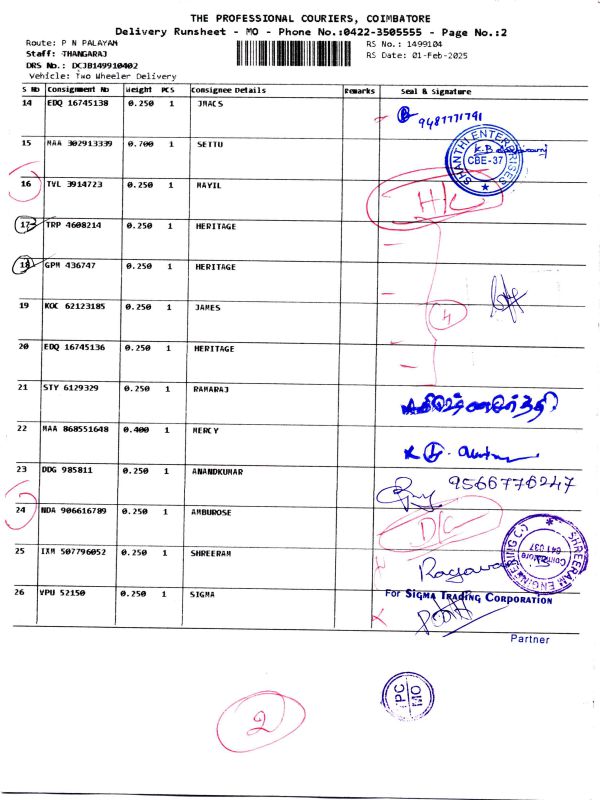 THE PROFESSIONAL COURIERS, COIMBATORE
Delivery Runsheet - MO - Phone No.:0422-3505555 - Page No.:2
Route: P N PALAYAM
RS No.: 1499104
Staff: THANGARAJ
RS Date: 01-Feb-2025
DRS No.: DCJB149910402
Vehicle: Two Wheeler Delivery
S No Consignment No Weight PCS Consignee Details Remarks Seal & Signature
14 EDQ 16745138 0.250 1 JMACS
9487771791
15 MAA 302913339 0.700 1 SETTU
SHANTHI ENTERPRISES
CBE-37
16 TVL 3914723 0.250 1 MAYIL
H/C
17 TRP 4608214 0.250 1 HERITAGE
18 GPM 436747 0.250 1 HERITAGE
19 KOC 62123185 0.250 1 JAMES
4
20 EDQ 16745136 0.250 1 HERITAGE
21 STY 6129329 0.250 1 RAMARAJ
22 MAA 868551648 0.400 1 MERCY
23 DDG 985811 0.250 1 ANANDKUMAR
9566776247
24 NDA 906616789 0.250 1 AMBUROSE
D/C
25 IXM 507796052 0.250 1 SHREERAM
SHREERAM ENGINEERING CO
Coimbatore
641 037
26 VPU 52150 0.250 1 SIGMA
For SIGMA TRADING CORPORATION
Partner
PC
MO
2